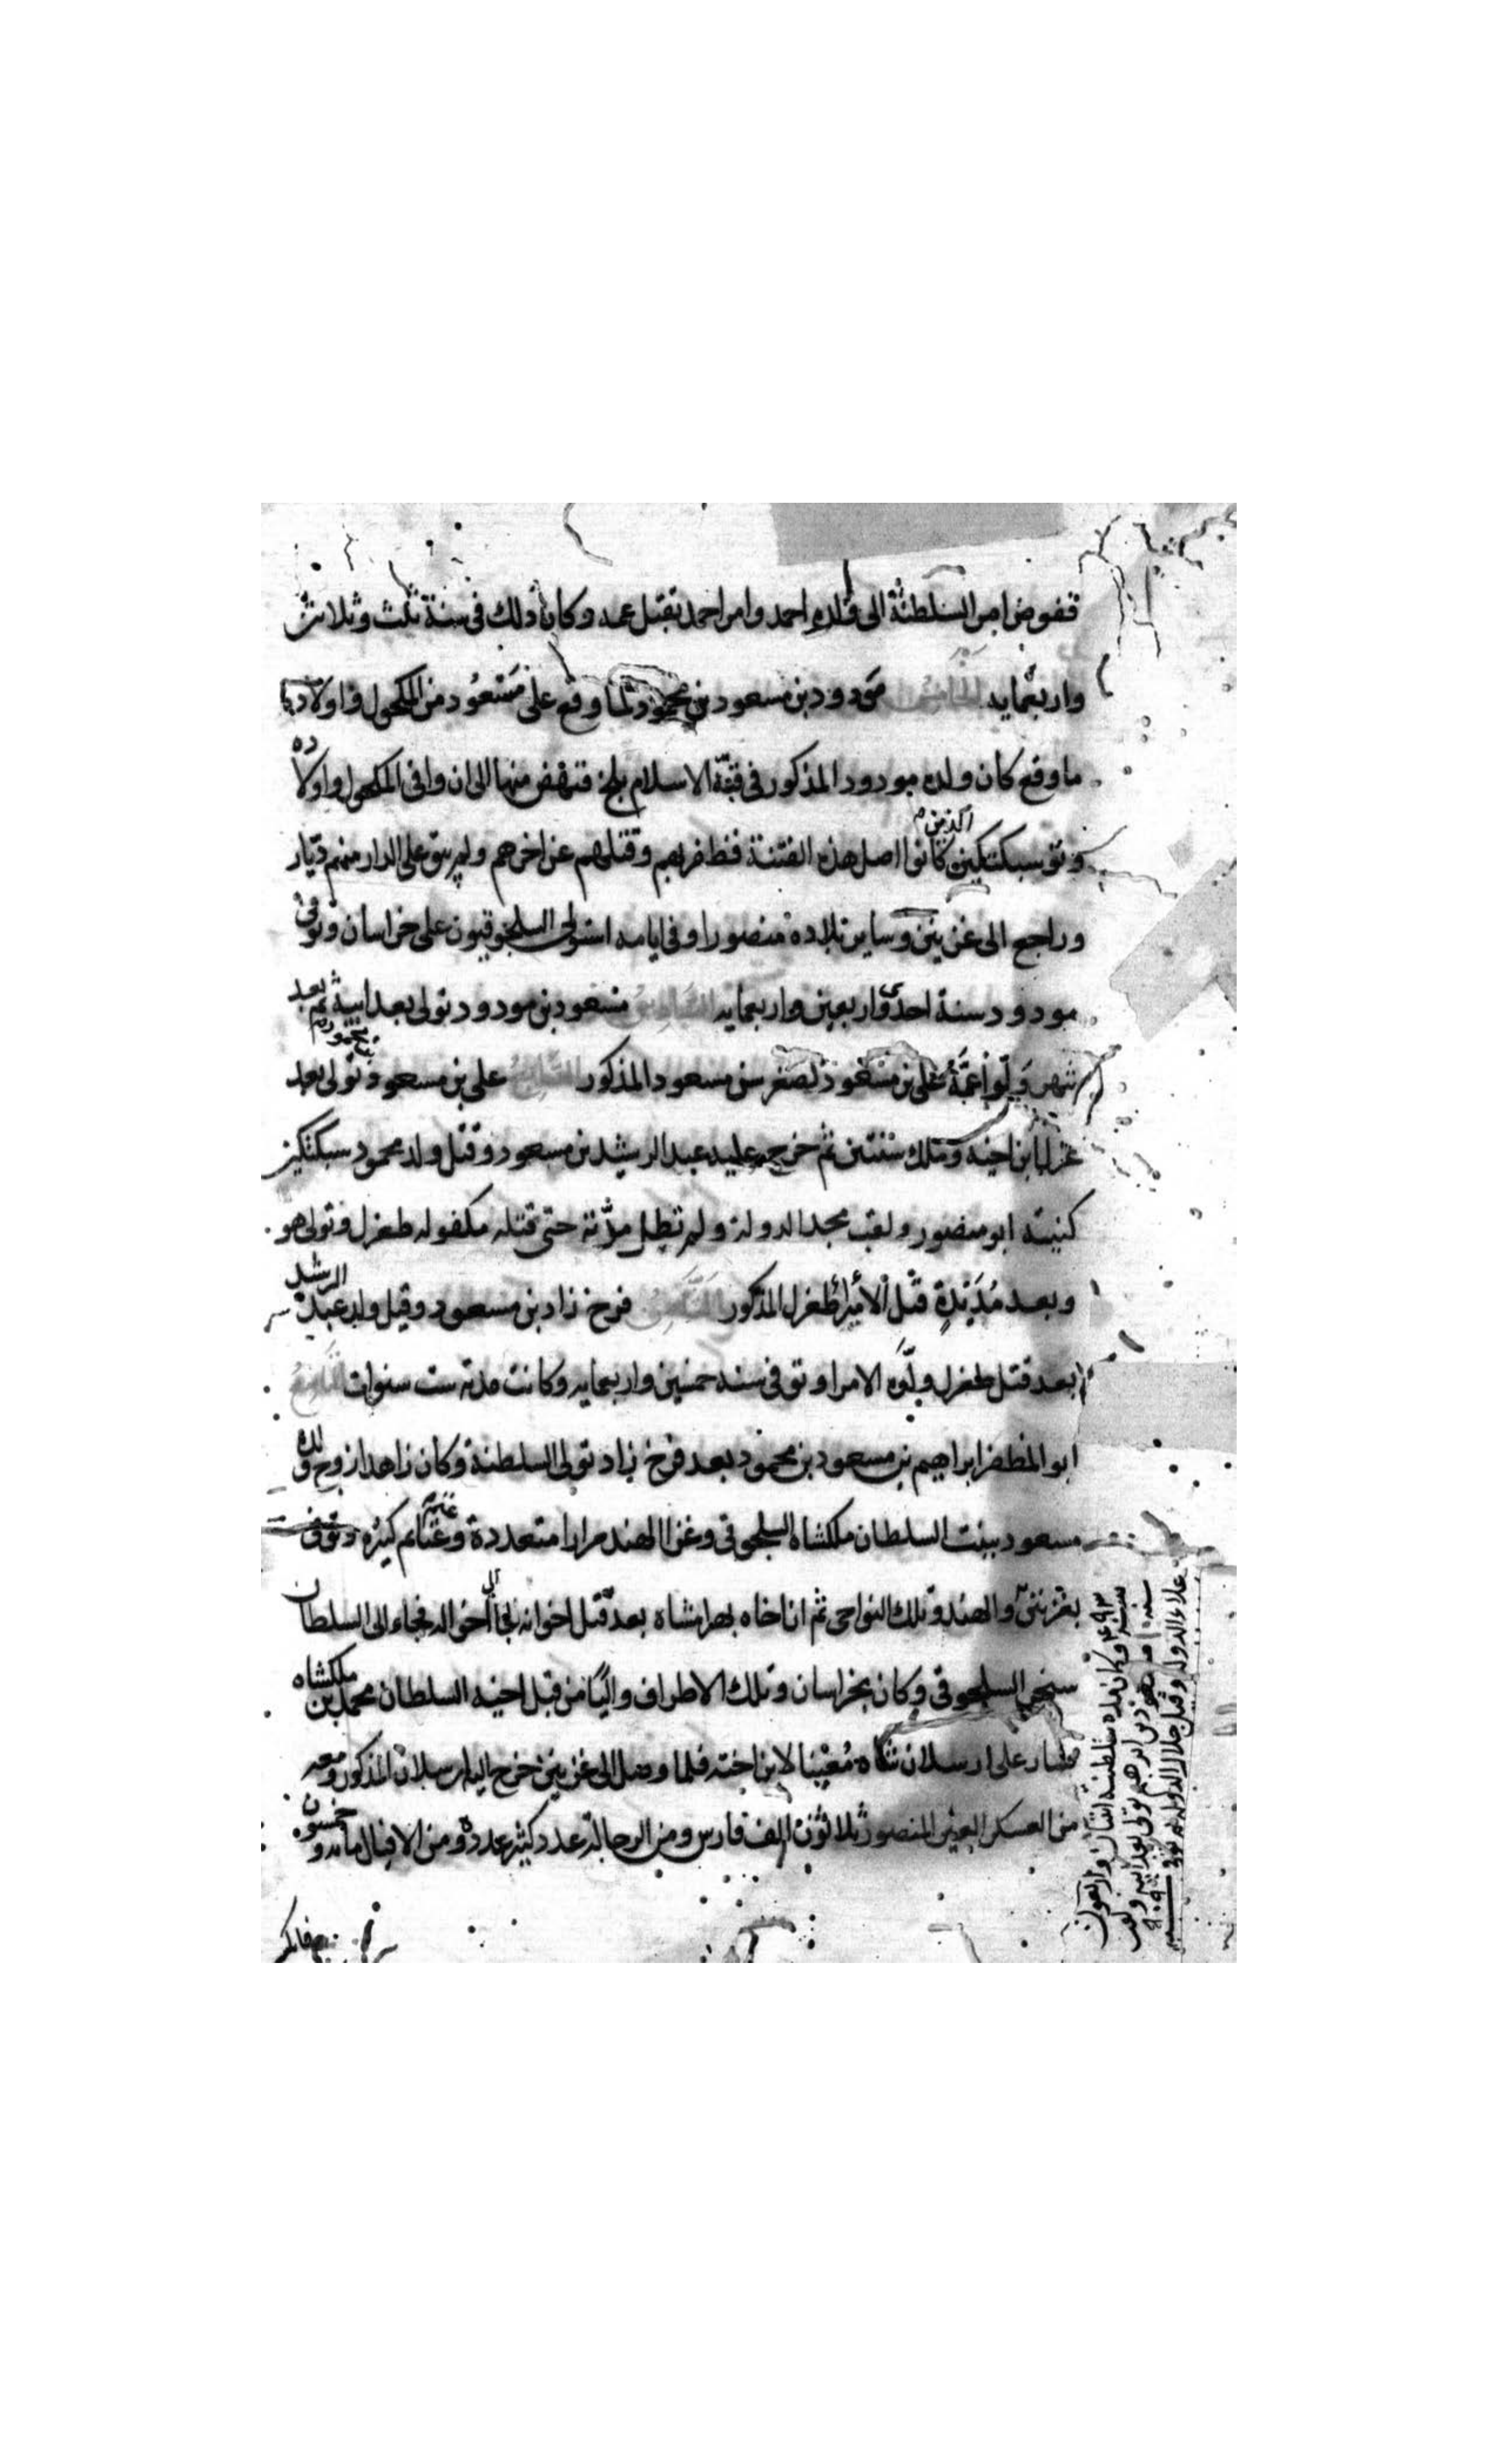 ففوض امر السلطنة الى ولده احمد وامر احمد بقتل عمه وكان ذلك فى سنة ثلث وثلاثين
واربعمايه الخامس مودود بن مسعود بن محمود لما وقع على مسعود من المكحول واولاده
ما وقع كان ولده مودود المذكور فى قبة الاسلام بلخ فنهض منها الى ان وافى المكحول واولاده
وتوسبكتكين الذين كانوا اصل هذه الفتنة فظفر بهم وقتلهم عن اخرهم ولم يبق على الدار منهم ديار
وراجع الى غزنين وساير بلاده منصورا وفى ايامه استولى السلجوقيون على خراسان وتوفى
مودود سنة احدى واربعين واربعمايه السادس مسعود بن مودود تولى بعد ابيه ثم بعد
شهر ولوا عمه على بن مسعود لصغر سن مسعود المذكور السابع على بن مسعود بن محمود تولى بعد
عزل ابن اخيه وملك سنتين ثم خرج عليه عبد الرشيد بن مسعود وقيل ولد محمود سبكتكين
كنيته ابو منصور ولقب مجد الدولة ولم تطل مدته حتى قتله مكفوله طغرل وتولى هو
وبعد مديدة قتل الامراء طغرل المذكور الثامن فرخ زاد بن مسعود وقيل ولد عبد الرشيد
بعد قتل طغرل ولوه الامرا وتوفى سنه خمسين واربعمايه وكانت مدته ست سنوات التاسع
ابو المظفر ابراهيم بن مسعود بن محمود بعد فرخ زاد تولى السلطنة وكان زاهدا زوج ولده
مسعود ببنت السلطان ملكشاه السلجوقى وغزا الهند مرارا متعددة وغنم غنائم كثيره وتوفى
بغزنين والهند وتلك النواحى ثم ان اخاه بهرامشاه بعد قتل اخوانه لجا الى اخواله فجاء الى السلطان
سنجر السلجوقى وكان بخراسان وتلك الاطراف واليا من قبل اخيه السلطان محمد بن ملكشاه
فسار على ارسلان شاه معينا لابن اخته فلما وصل الى غزنين خرج اليه ارسلان المذكور ومعه
من العسكر المنصور ثلاثون الف فارس ومن الرجالة عدد كثير عدده ومن الافيال مائه وخمسون
سنة ٤٩٣ وكان مدة سلطنته اثنتان واربعون
مسعود بن ابرهيم تولى بعد ابيه ولقب
علاء الدوله وقيل جلال الدوله توفى سنه ٥٠٩